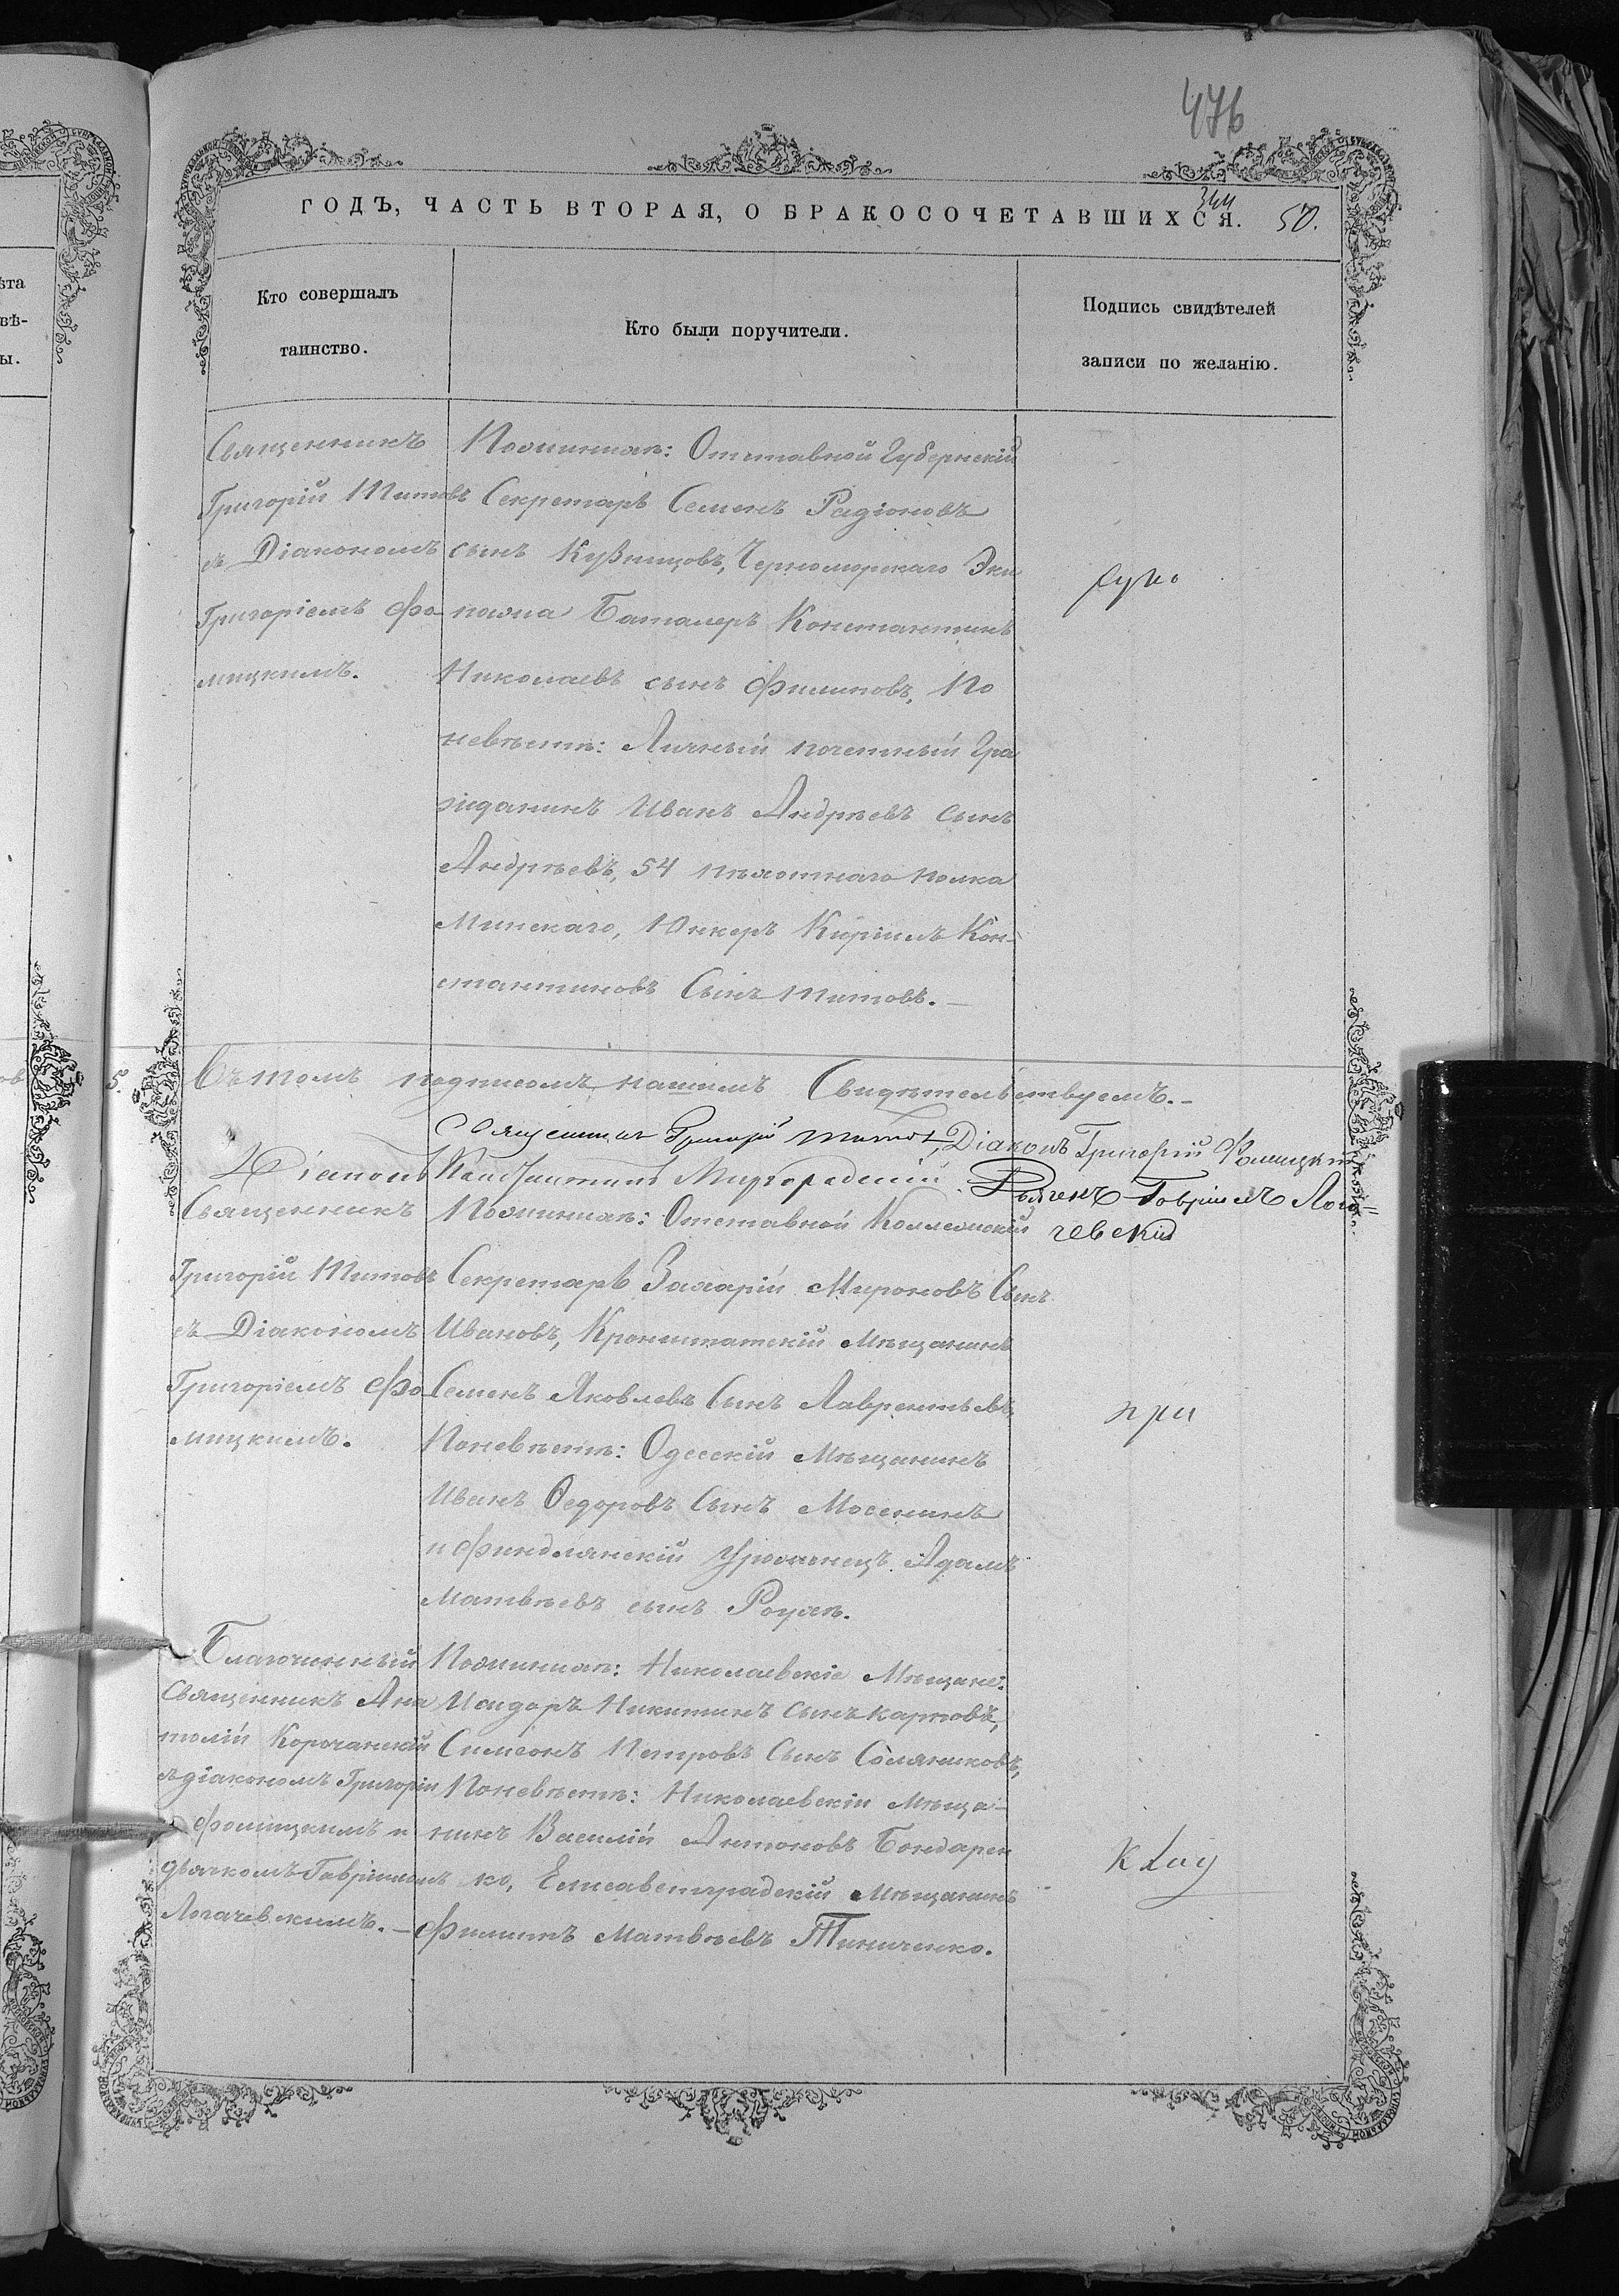 476
ГОДЪ, ЧАСТЬ ВТОРАЯ, О БРАКОСОЧЕТАВШИХСЯ.
344
50.
Кто совершалъ
таинство.
Кто были поручители.
Подпись свидѣтелей
записи по желанію.
Священникъ
Григорій Титовъ
съ Діакономъ
Григоріемъ Фо-
мицкимъ.
По женихѣ: Отставной Губернскій
Секретарь Семенъ Радіоновъ
сынъ Кузнецовъ, Черноморскаго Эки
пажа Баталеръ Константинъ
Николаевъ сынъ Филиповъ, По
невѣстѣ: Личный почетный Гра
жданинъ Иванъ Андрѣевъ сынъ
Андрѣевъ, 54 пѣхотнаго полка
Минскаго, Юнкеръ Кирилъ Кон-
стантиновъ Сынъ Титовъ.
Въ томъ подписомъ нашимъ Свидѣтельствуемъ.
Священникъ Григорій Титовъ, Діаконъ Григорій Фомицкій
Діаконъ Константинъ Миргородскій. Дьячекъ Гавріилъ Лога=
чевскій
Священникъ
Григорій Титовъ
съ Діакономъ
Григоріемъ Фо
мицкимъ.
По женихѣ: Отставной Коллежскій
Секретарь Захарій Мироновъ Сынъ
Ивановъ, Кронштатскій Мѣщанинъ
Семенъ Яковлевъ Сынъ Лаврентьевъ,
По невѣстѣ: Одесскій Мѣщанинъ
Иванъ Ѳедоровъ Сынъ Мосенинъ
и Финдлянскій Уроженецъ Адамъ
Матвѣевъ сынъ
при
Благочинный
Священникъ Ана
толій Корочанскій
съ діакономъ Григорій
Фомицкимъ и
дьячкомъ Гавріиломъ
Логачевскимъ.
По женихѣ: Николаевскіе Мѣщане:
Исидоръ Никитинъ Сынъ Карповъ,
Симеонъ Петровъ Сынъ Соляниковъ,
По невѣстѣ: Николаевскій мѣща-
нинъ Василій Антоновъ Бондарен
ко, Елисаветградскій Мѣщанинъ
Филипъ Матвѣевъ